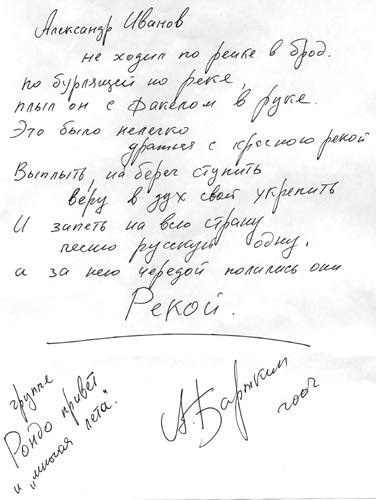 Александр Иванов
не ходил по речке в брод.
по бурлящей но реке,
плыл он с факелом в руке.
Это было нелегко
драться с красною рекой
Выплыть, на берег ступить
веру в дух свой укрепить
И запеть на всю страну
песню русскую одну.
а за нею чередой полились они
Рекой.
группе
Рондо привет
и "многая лета".
А. Барыкин
2002